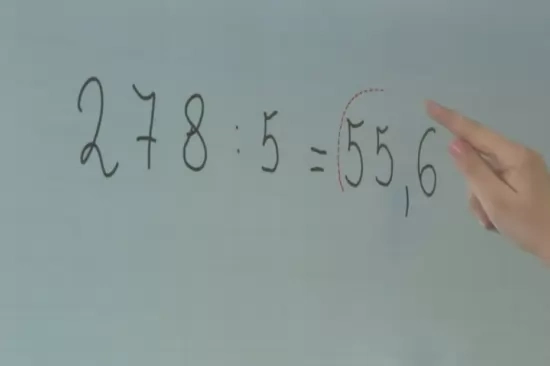 278 : 5 = 55,6